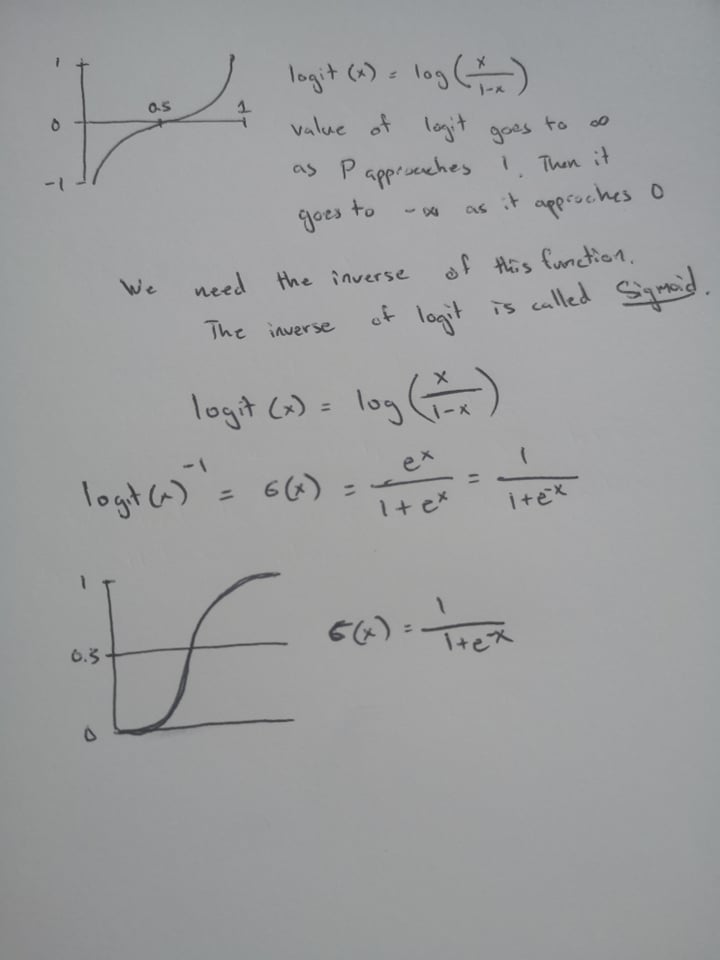 1
0.5
1
0
-1
logit (x) = log(x/1-x)
value of logit goes to ∞
as P approaches 1. Then it
goes to -∞ as it approches 0
We need the inverse of this function.
The inverse of logit is called Sigmoid.
logit (x) = log(x/1-x)
logit(x)^-1 = σ(x) = e^x/1+e^x = 1/1+e^-x
1
0.5
0
σ(x) = 1/1+e^-x